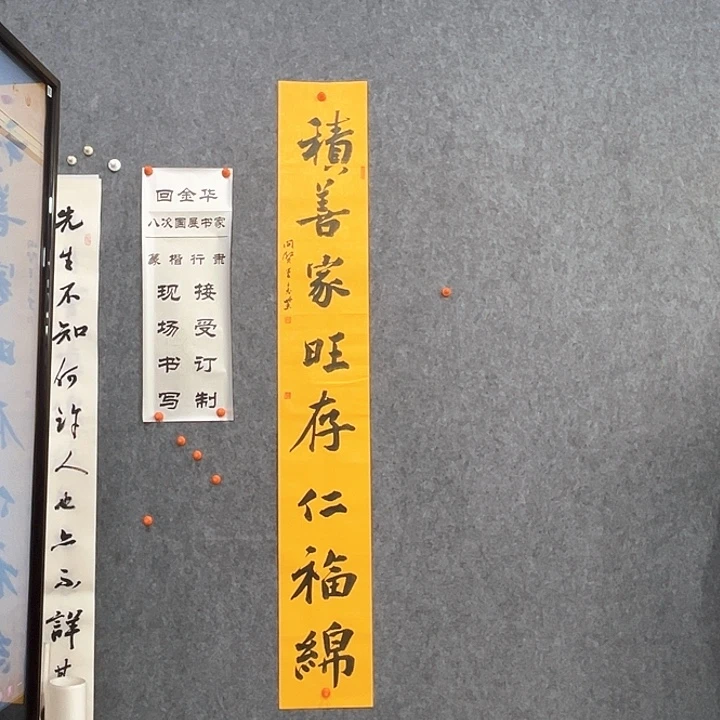 先生不知何許人也亦不詳其
回金华
八次国展书家
篆楷行隶
现场书写
接受订制
積善家旺存仁福綿